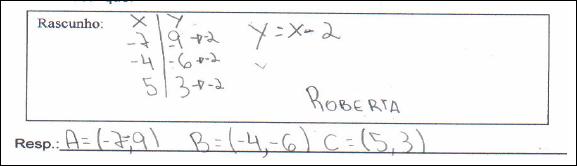 Rascunho: X | Y
-7 | -9 → -2 Y = X - 2
-4 | -6 → -2
5 | 3 → -2
ROBERTA
Resp.: A = (-7,-9) B = (-4,-6) C = (5,3)